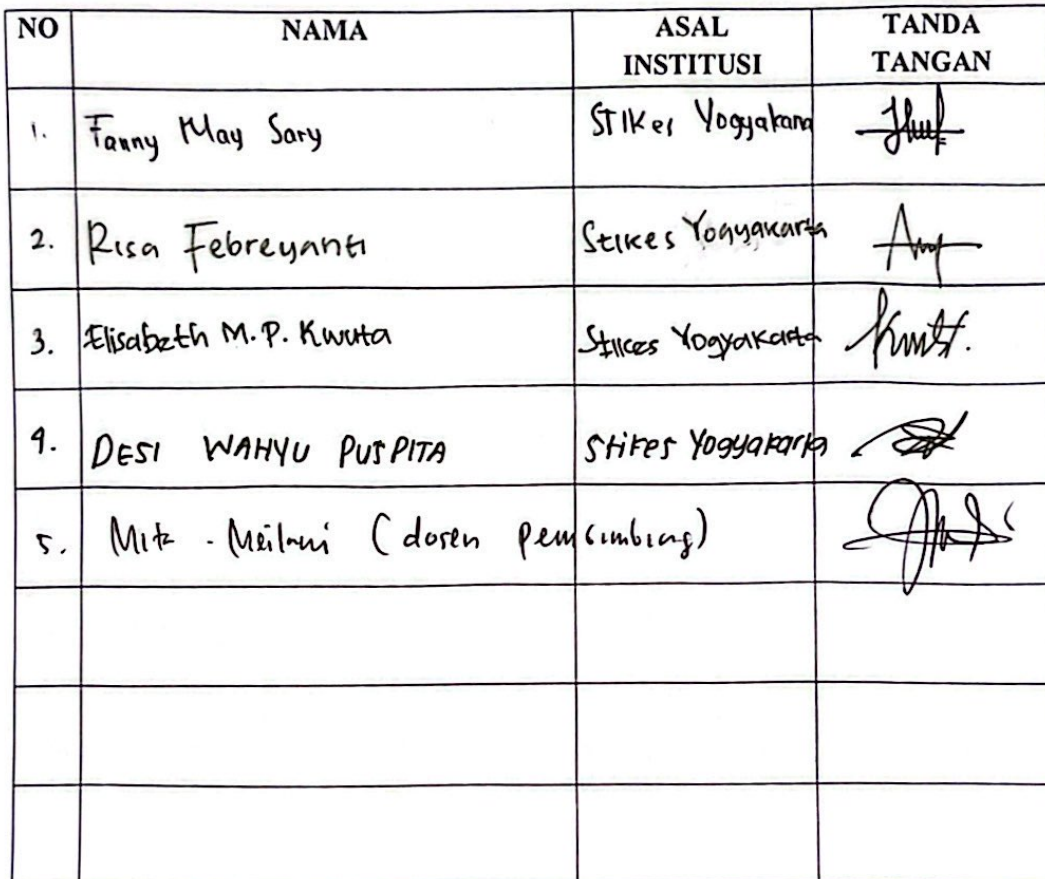 NO NAMA ASAL INSTITUSI TANDA TANGAN
1. Fanny May Sary STIKes Yogyakarta
2. Risa Febreyanti Stikes Yogyakarta
3. Elisabeth M.P. Kwuta Stikes Yogyakarta
4. DESI WAHYU PUSPITA Stikes Yogyakarta
5. Meilani (dosen pembimbing)